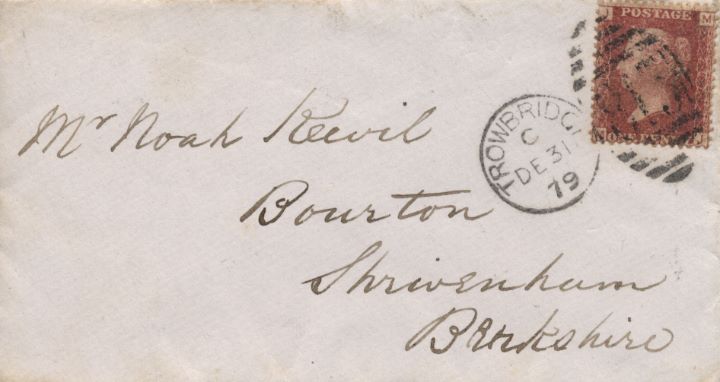 POSTAGE
M
ONE PENNY
TROWBRIDGE
C
DE 31
79
Mr Noah Keevil
Bourton
Shrivenham
Berkshire